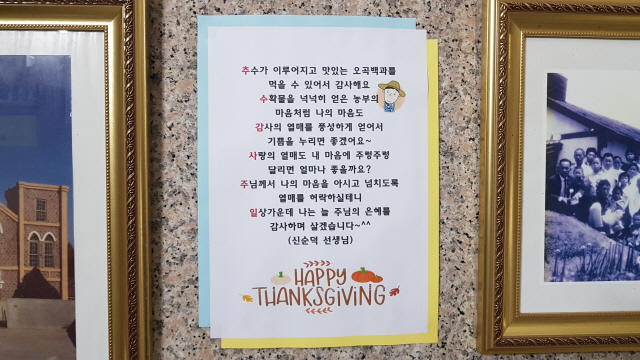 추수가 이루어지고 맛있는 오곡백과를
먹을 수 있어서 감사해요
수확물을 넉넉히 얻은 농부의
마음처럼 나의 마음도
감사의 열매를 풍성하게 얻어서
기쁨을 누리면 좋겠어요~
사랑의 열매도 내 마음에 주렁주렁
달리면 얼마나 좋을까요?
주님께서 나의 마음을 아시고 넘치도록
열매를 허락하실테니
일상가운데 나는 늘 주님의 은혜를
감사하며 살겠습니다~^^
(신순덕 선생님)
HAPPY
THANKSGIVING